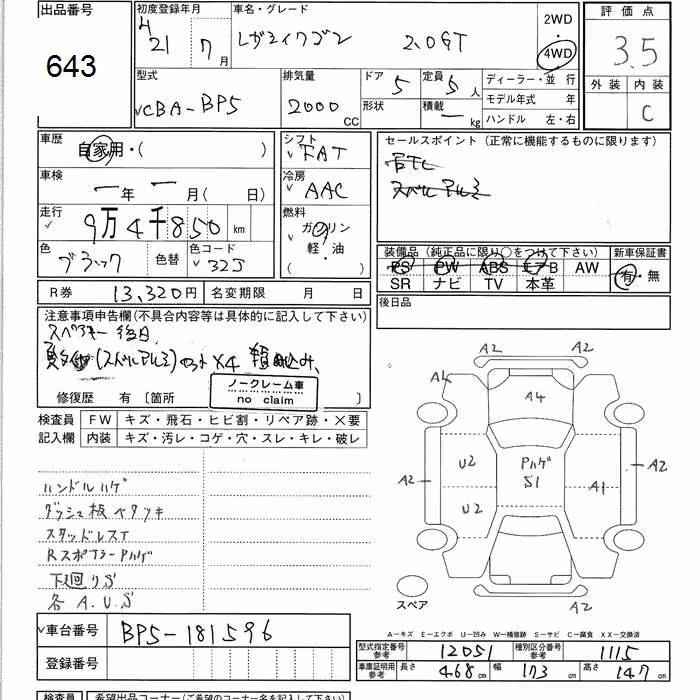 出品番号
643
初度登録年月
H 21年 7月
車名・グレード
レガシィワゴン 2.0GT
2WD
・
4WD
評価点
3.5
外装 内装
C
型式
CBA-BP5
排気量
2000 CC
ドア 5
形状
定員 5人
積載 ー kg
ディーラー・並行
モデル年式 年
ハンドル 左・右
車歴
自家用・( )
車検
ー年 ー月( 日)
走行
9万4千850km
色
ブラック
色替
色コード
32J
シフト
FAT
冷房
AAC
燃料
ガソリン
軽・油
セールスポイント(正常に機能するものに限ります)
スバルアルミ
装備品(純正品に限り○をつけて下さい)
PS PW ABS エアB AW
SR ナビ TV 本革
新車保証書
有・無
R券 13,320円
名変期限 月 日
後日品
注意事項申告欄(不具合内容等は具体的に記入して下さい)
スペアキー後日
(スバルアルミ)セット×4 積み込み、
ノークレーム車
no claim
修復歴 有〔箇所 〕
検査員
記入欄
FW キズ・飛石・ヒビ割・リペア跡・×要
内装 キズ・汚レ・コゲ・穴・スレ・キレ・破レ
ハンドルハゲ
ダッシュ板ベタツキ
スタッドレスT
RスポイラーPハゲ
下廻りS
各A.U.S
A2
A4
A4
A2
A2
U2
PハゲS1
A1
A2
U2
A2
スペア
A2
A―キズ E―エクボ U―凹み W―補修跡 S―サビ C―腐食 XX―交換済
車台番号 BP5-181596
登録番号
型式指定番号
参考
12051
種別区分番号
参考
1115
車庫証明用
参考
長さ 468cm 幅 173cm 高さ 147cm
検査員
希望出品コーナー(ご希望のコーナー名を記入して下さい)